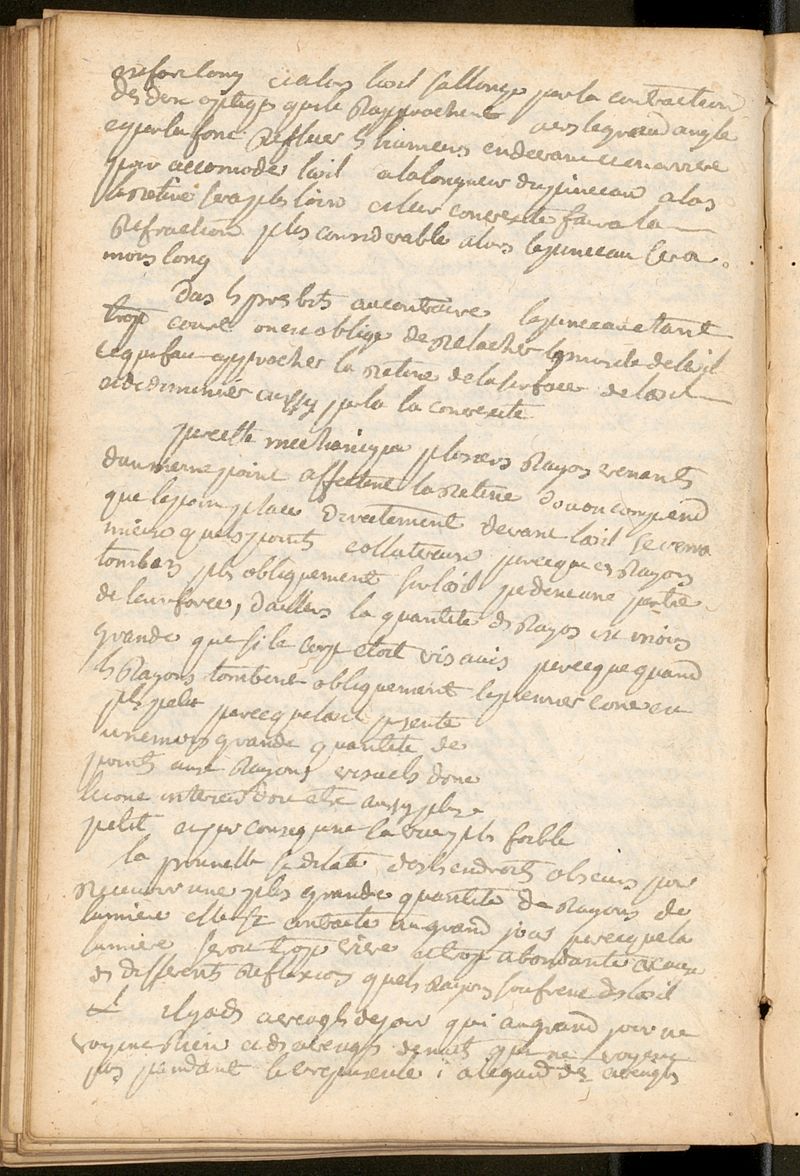 long et alors l'oeil sallonge par la contraction
des deux obliques qui le Rapprochent vers le grand angle
et par la font Refluer ls humeurs en devant et en arriere
pour accomoder loeil a la longueur du pinceau alors
la Retine sera plus loin et leur convexité faira la
Refraction pls considerable alors le pinceau sera
moins long
Das ls presbits au contraire le pinceau etant
trop court on est obligé de Relacher ls muscls de loeil
ce qui fait approcher la Retine de la surface de loeil
et de diminuer aussy par la la convexité
par cette mechanique plusieurs Rayons venants
dun meme point affectent la Retine dou on comprend
que le point placé directement devant loeil se verra
mieux que ls points collateraux parceque cs Rayons
tombants pls obliquement sur loeil perdent une partie
de leur force, dailleurs la quantité ds Rayos est moins
grande que si le corp etoit vis avis parceque quand
ls Rayons tombent obliquement le premier cone est
pls petit parceque loeil psente
une mois grande quantité de
points aux Rayons visuels donc
le cone interieur doit etre aussy pls
petit et par consequent la vue pls foible
la prunelle se dilate ds ls endroits obscurs pour
Recevoir une plus grande quantité de Rayons de
lumiere elle se contracte au grand jour parceque la
lumiere seroit trop vive et trop abondante a cause
ds differents Reflexions que ls Rayons soufrent ds loeil
il y a ds aveugls de jour qui au grand jour ne
voyent Rien et ds aveugls de nuit qui ne voyent
pas pendant le crepuscule a legard des aveugls